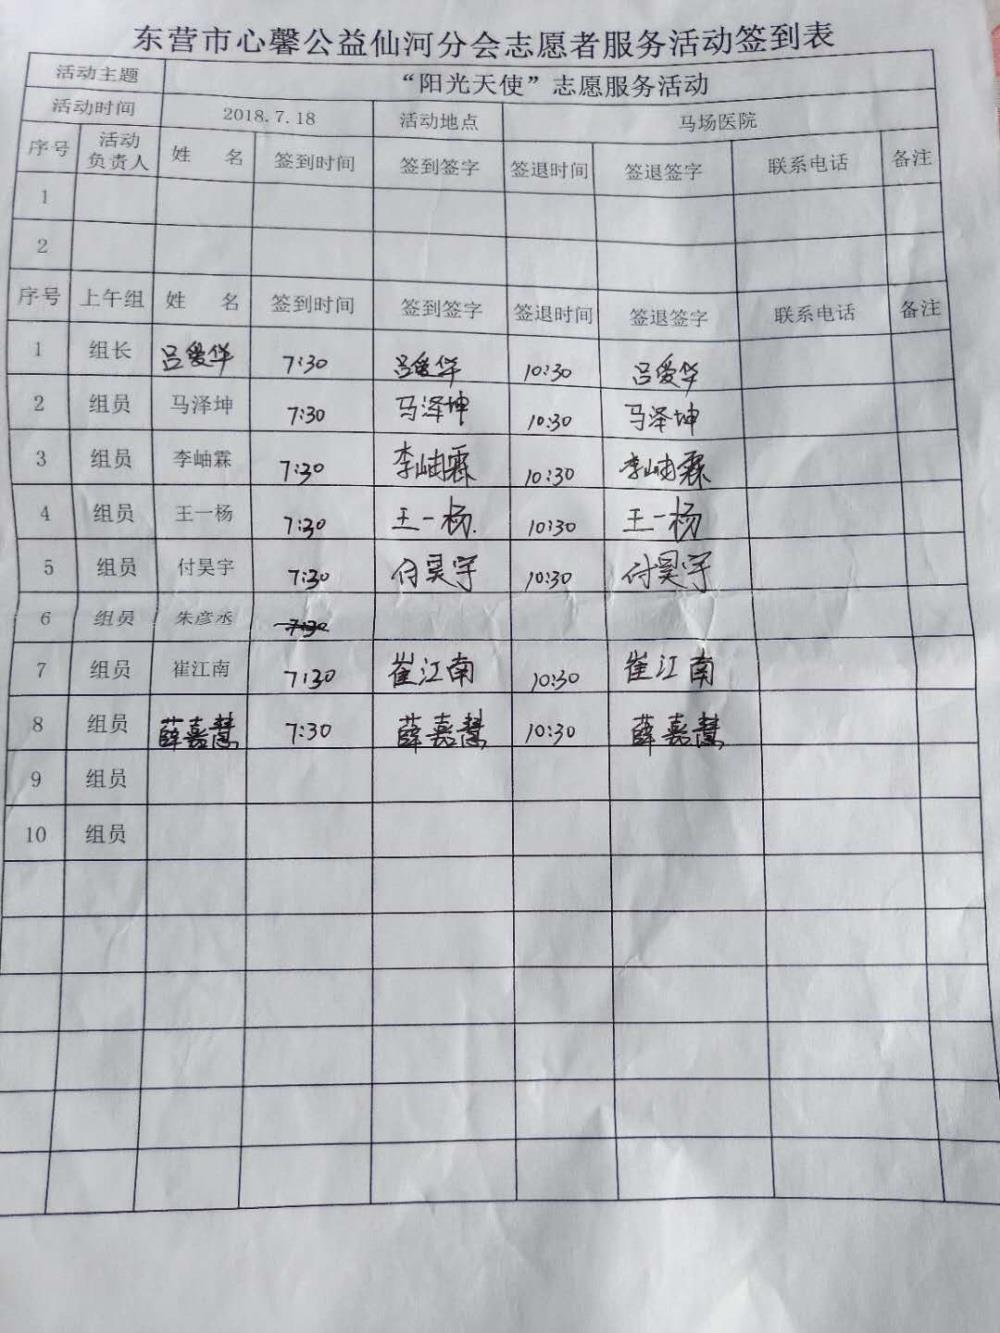 东营市心馨公益仙河分会志愿者服务活动签到表
活动主题 “阳光天使”志愿服务活动
活动时间 2018.7.18 活动地点 马场医院
序号 活动负责人 姓 名 签到时间 签到签字 签退时间 签退签字 联系电话 备注
1
2
序号 上午组 姓 名 签到时间 签到签字 签退时间 签退签字 联系电话 备注
1 组长 吕爱华 7:30 吕爱华 10:30 吕爱华
2 组员 马泽坤 7:30 马泽坤 10:30 马泽坤
3 组员 李岫霖 7:30 李岫霖 10:30 李岫霖
4 组员 王一杨 7:30 王一杨 10:30 王一杨
5 组员 付昊宇 7:30 付昊宇 10:30 付昊宇
6 组员 朱彦丞 7:30
7 组员 崔江南 7:30 崔江南 10:30 崔江南
8 组员 薛嘉慧 7:30 薛嘉慧 10:30 薛嘉慧
9 组员
10 组员